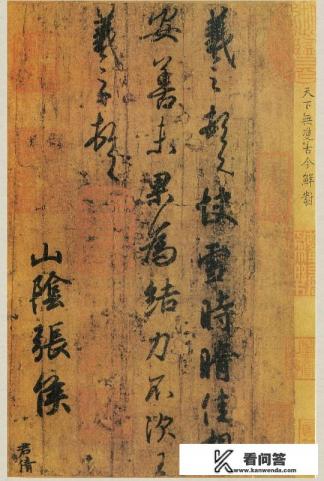 天下無雙古今鮮對
羲之頓首快雪時晴佳想
安善未果為結力不次王
羲之頓首
山陰張侯
君倩
看问答
www.kanwenda.com